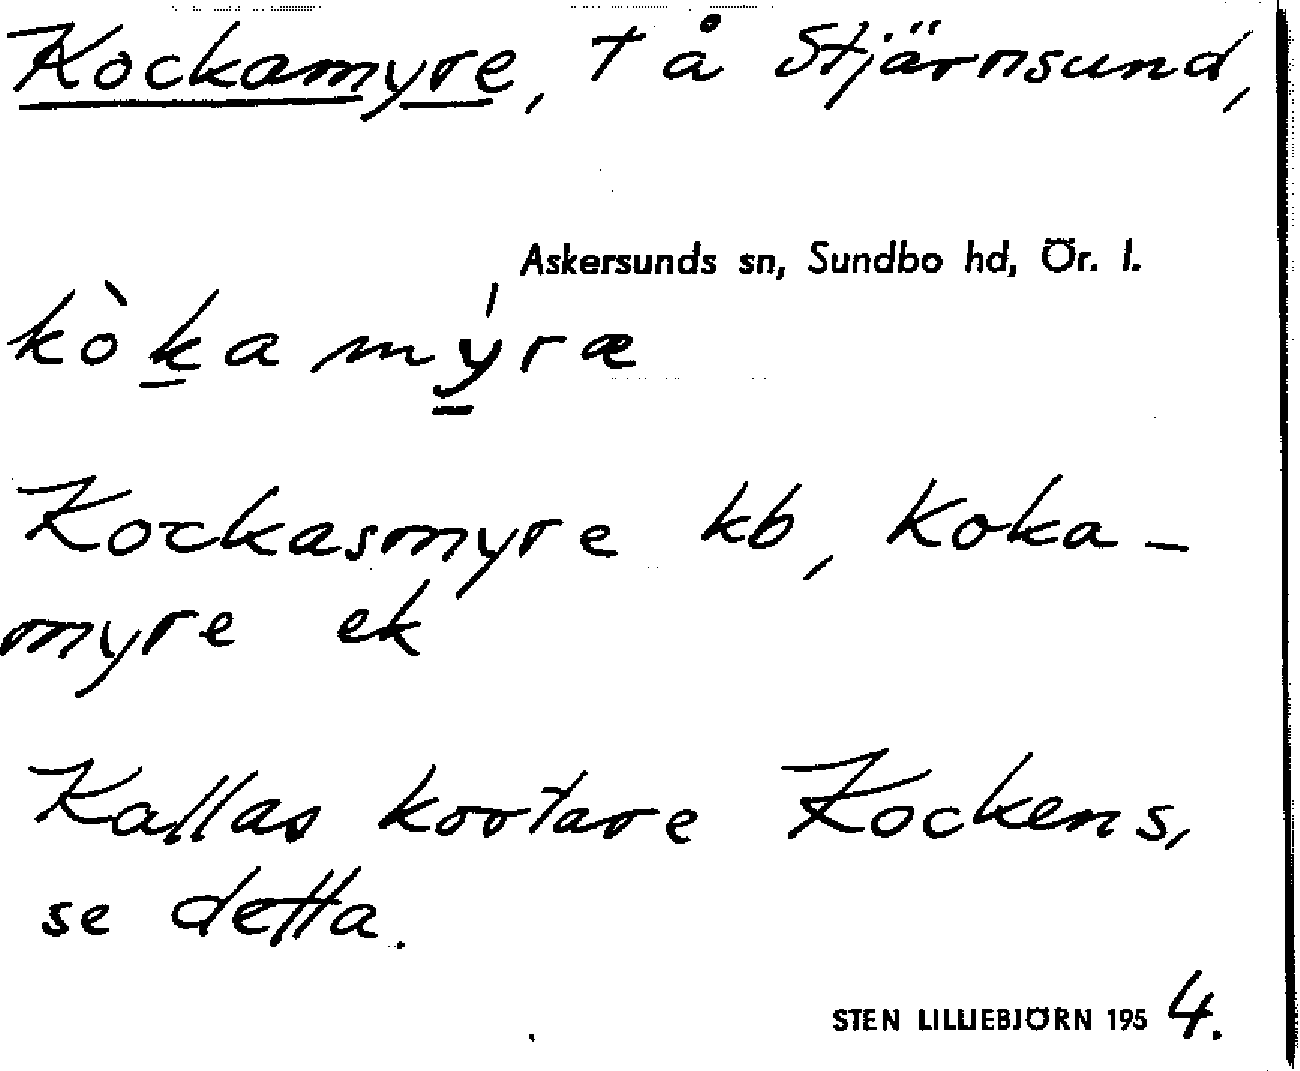 Kockamyre, t å Stjärnsund,
Askersunds sn, Sundbo hd, Ör. l.
kòkamýræ
Kockasmyre kb, Koka-
myre ek
Kallas kortare Kockens,
se detta.
STEN LILLIEBJÖRN 1954.